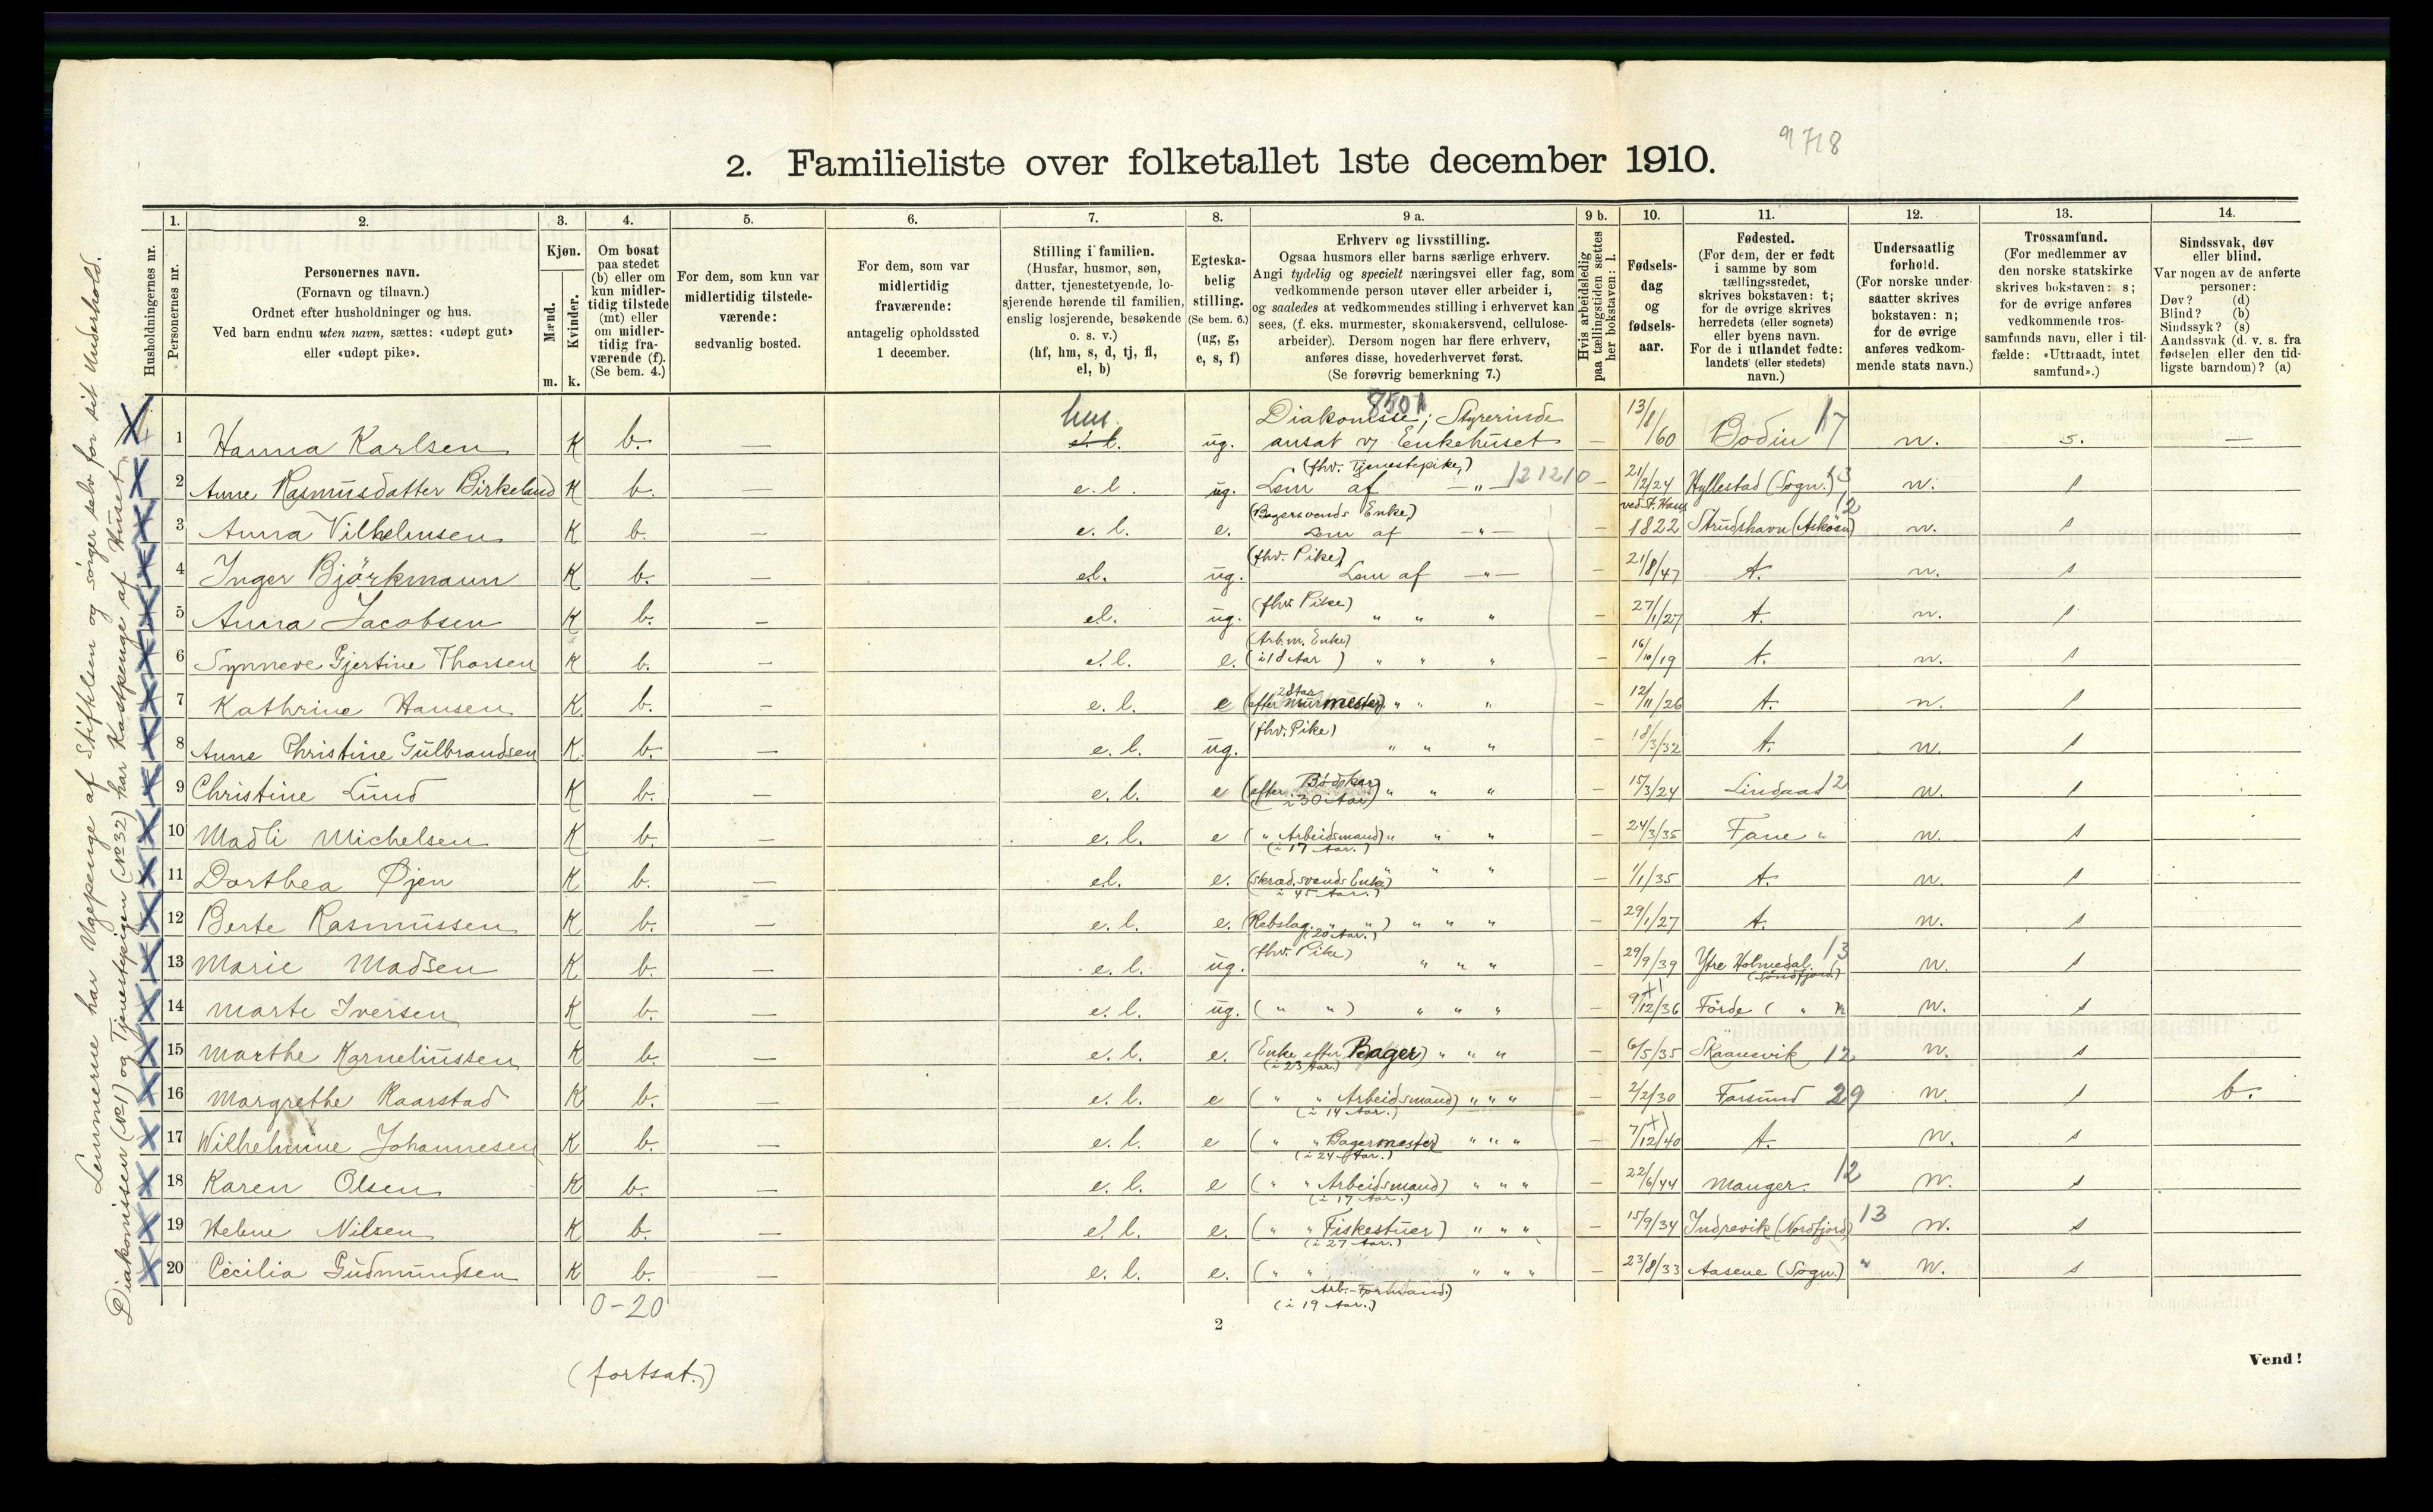 9718
2. Familieliste over folketallet 1ste december 1910.
Husholdningernes nr.
1. Personernes nr.
2. Personernes navn.
(Fornavn og tilnavn.)
Ordnet efter husholdninger og hus.
Ved barn endnu uten navn, sættes: «udøpt gut»
eller «udøpt pike».
3. Kjøn.
Mænd. m.
Kvinder. k.
4. Om bosat
paa stedet
(b) eller om
kun midler-
tidig tilstede
(mt) eller
om midler-
tidig fra-
værende (f).
(Se bem. 4.)
5. For dem, som kun var
midlertidig tilstede-
værende:
sedvanlig bosted.
6. For dem, som var
midlertidig
fraværende:
antagelig opholdssted
1 december.
7. Stilling i familien.
(Husfar, husmor, søn,
datter, tjenestetyende, lo-
sjerende hørende til familien,
enslig losjerende, besøkende
o. s. v.)
(hf, hm, s, d, tj, fl,
el, b)
8. Egteska-
belig
stilling.
(Se bem. 6.)
(ug, g,
e, s, f)
9 a. Erhverv og livsstilling.
Ogsaa husmors eller barns særlige erhverv.
Angi tydelig og specielt næringsvei eller fag, som
vedkommende person utøver eller arbeider i,
og saaledes at vedkommendes stilling i erhvervet kan
sees, (f. eks. murmester, skomakersvend, cellulose-
arbeider). Dersom nogen har flere erhverv,
anføres disse, hovederhvervet først.
(Se forøvrig bemerkning 7.)
9 b. Hvis arbeidsledig
paa tællingstiden sættes
her bokstaven: l.
10. Fødsels-
dag
og
fødsels-
aar.
11. Fødested.
(For dem, der er født
i samme by som
tællingsstedet,
skrives bokstaven: t;
for de øvrige skrives
herredets (eller sognets)
eller byens navn.
For de i utlandet fødte:
landets (eller stedets)
navn.)
12. Undersaatlig
forhold.
(For norske under-
saatter skrives
bokstaven: n;
for de øvrige
anføres vedkom-
mende stats navn.)
13. Trossamfund.
(For medlemmer av
den norske statskirke
skrives bokstaven: s;
for de øvrige anføres
vedkommende tros-
samfunds navn, eller i til-
fælde: «Uttraadt, intet
samfund».)
14. Sindssvak, døv
eller blind.
Var nogen av de anførte
personer:
Døv? (d)
Blind? (b)
Sindssyk? (s)
Aandssvak (d. v. s. fra
fødselen eller den tid-
ligste barndom)? (a)
Lemmerne har Ugepenge af Stiftelsen og sørger selv for sit Underhold.
Diakonissen (№1) og Tjenestepigen (№32) har Kostpenge af Huset.
1 Hanna Karlsen K b. — hus e. l. ug. 8501 Diakonisse; Styrerinde ansat v/ Enkehuset — 13/8/60 Bodin 17 n. s. —
2 Anne Rasmusdatter Birkeland K b. — e. l. ug. (fhv. Tjenestepike,) Lem af —"— 121210 — 21/2/24 Hyllestad (Sogn.) 13 n. s
3 Anna Vilhelmsen K b. — e. l. e. (Bagersvends Enke) Lem af —"— — ved St. Hans 1822 Strudshavn (Askøen) 12 n. s
4 Inger Björkmann K b. — el. ug. (fhv. Pike) Lem af —"— — 21/8/47 t. n. s
5 Anna Jacobsen K b. — el. ug. (fhv Pike) " " " — 27/1/27 t. n. s
6 Synneve Gjertine Thorsen K b. — e. l. e. (Arb.m. Enke) (i 18 Aar) " " " — 16/10/19 t. n. s
7 Kathrine Hansen K. b. — e. l. e (efter Murmester) 28 Aar " " " — 12/11/26 t. n. s
8 Anne Christine Gulbrandsen K. b. — e. l. ug. (fhv. Pike) " " " — 18/3/32 t. n. s
9 Christine Lund K b. — e. l. e (efter Bødker) (i 30 Aar) " " " — 15/3/24 Lindaas 12 n. s
10 Madli Michelsen K b. — e. l. e (" Arbeidsmand) (i 17 Aar.) " " " — 24/3/35 Fane " n. s
11 Dorthea Øjen K b. — el. e. (Skræd.svends Enke) (i 45 Aar.) " " " — 1/1/35 t. n. s
12 Berte Rasmussen K b. — e. l. e. (Rebslag. " ") (20 Aar.) " " " — 29/1/27 t. n. s
13 Marie Madsen K b. — e. l. ug. (fhv. Pike) " " " — 29/9/39 Ytre Holmedal (Søndfjord.) 13 n. s
14 Marte Iversen K b. — e. l. ug. (" ") " " " — 9/12/36 Förde ( " n. s
15 Marthe Korneliussen K b. — e. l. e. (Enke efter Bager) (i 23 Aar.) " " " — 6/5/35 Skaanevik 12 n. s
16 Margrethe Raarstad K b. — e. l. e (" " Arbeidsmand) (i 14 Aar.) " " " — 2/2/30 Farsund 29 n. s b.
17 Wilhelmine Johannesen K b. — e. l. e (" " Bagermester) (i 24 Aar.) " " " — 7/12/40 t. n. s
18 Karen Olsen K b. — e. l. e (" " Arbeidsmand) (i 17 Aar.) " " " — 22/6/44 Manger. 12 n. s
19 Helene Nilsen K b. — e. l. e. (" " Fiskestuer) (i 27 Aar.) " " " — 15/9/34 Indrevik (Nordfjord) 13 n. s
20 Cecilia Gudmundsen K b. — e. l. e. (" " Arb.-Formand.) (i 19 Aar.) " " " — 23/8/33 Aasene (Sogn.) " n. s
0-20
2
(fortsat.)
Vend!